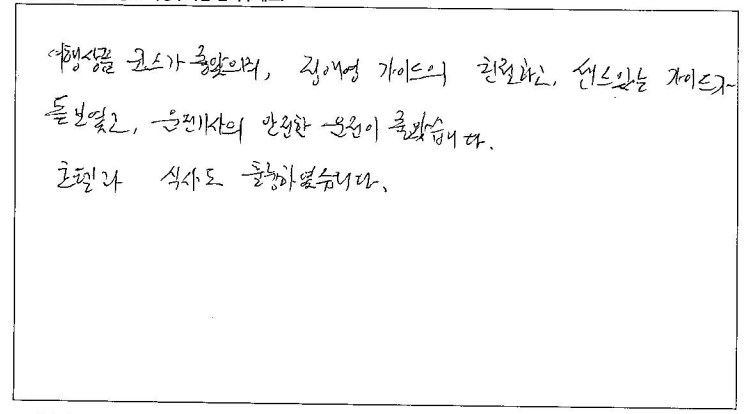 여행상품 코스가 좋았으며, 김애영 가이드의 친절하고, 센스있는 가이드가
돋보였고, 운전기사의 안전한 운전이 좋았습니다.
호텔과 식사도 훌륭하였습니다.